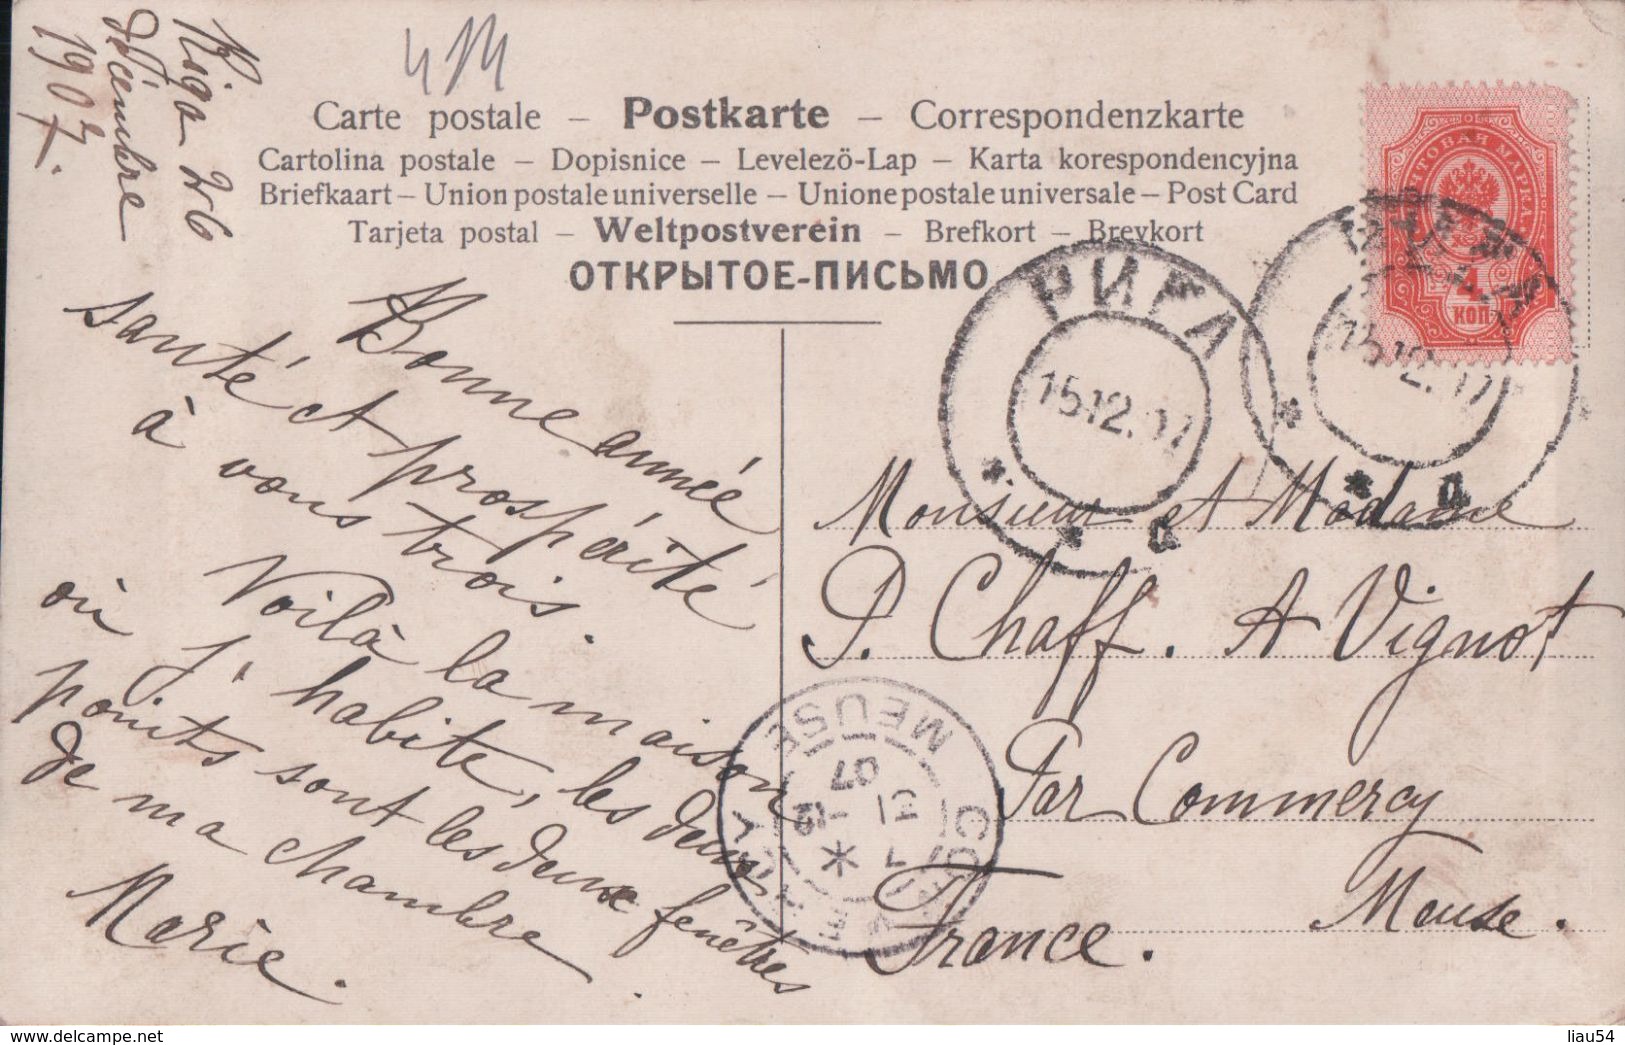 Riga 26
décembre
1907.
Carte postale – Postkarte – Correspondenzkarte
Cartolina postale – Dopisnice – Levelezö-Lap – Karta korespondencyjna
Briefkaart – Union postale universelle – Unione postale universale – Post Card
Tarjeta postal – Weltpostverein – Brefkort – Brevkort
ОТКРЫТОЕ-ПИСЬМО
Bonne année
santé et prospérité
à vous trois.
Voilà la maison
où j'habite, les deux
points sont les deux fenêtres
de ma chambre
Marie.
ПОЧТОВАЯ МАРКА
4
КОП
РИГА
15.12.07
15.12.07
Monsieur et Madame
P. Chaff. A Vignot
Par Commercy
Meuse.
France.
COMMERCY
MEUSE
07
www.delcampe.net
liau54